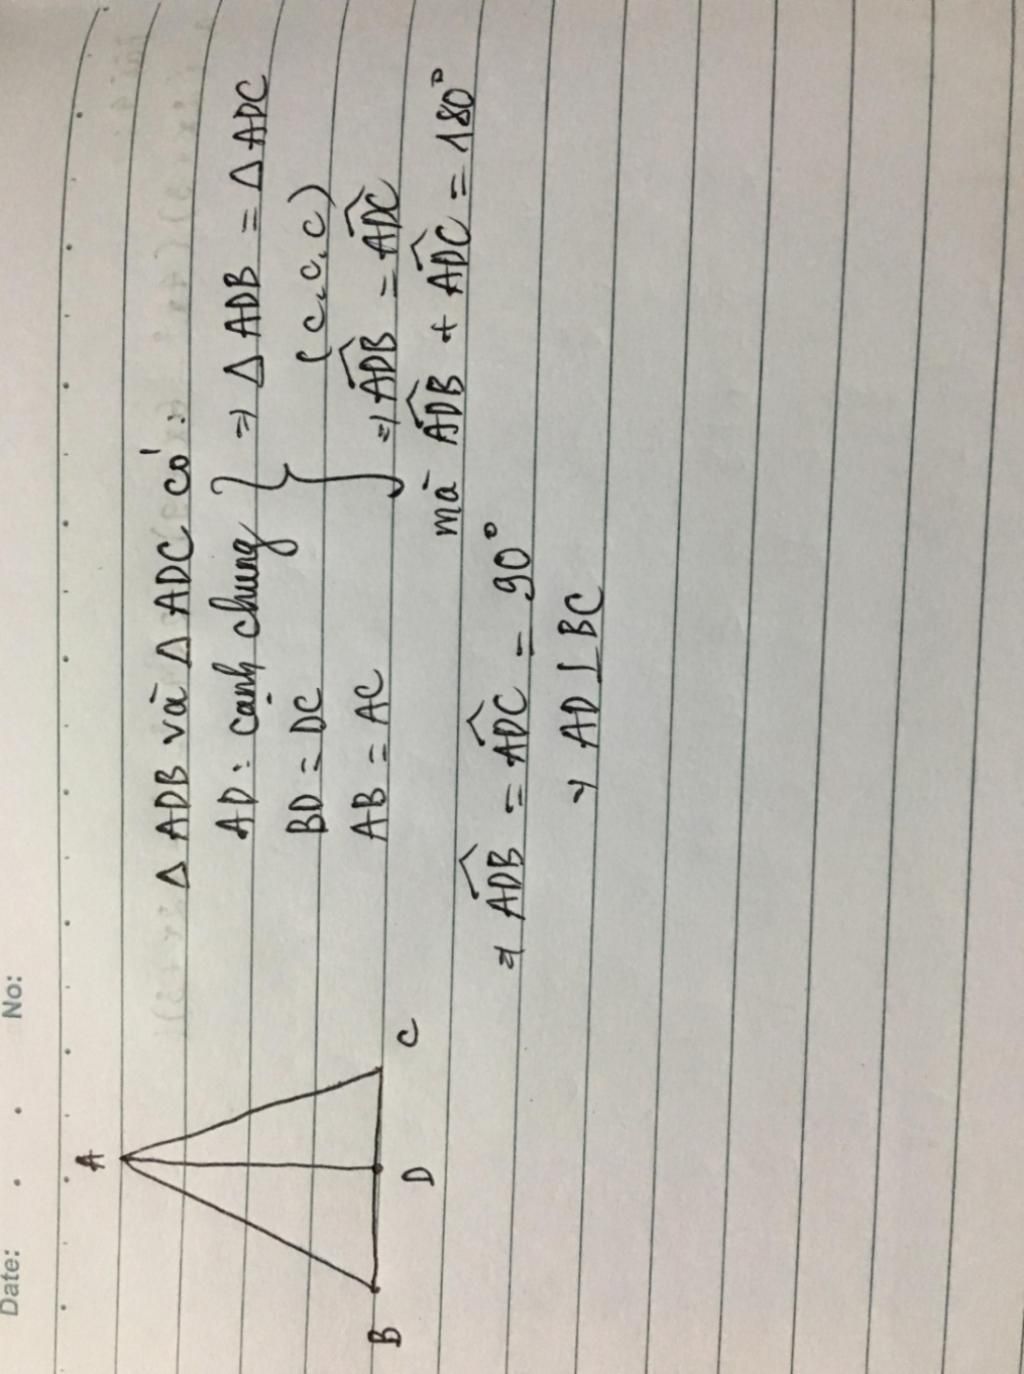 Date: No:
A
B
D
C
Δ ADB và Δ ADC có:
AD: cạnh chung } => Δ ADB = Δ ADC
BD = DC (c.c.c)
AB = AC => \widehat{ADB} = \widehat{ADC}
mà \widehat{ADB} + \widehat{ADC} = 180°
=> \widehat{ADB} = \widehat{ADC} = 90°
=> AD ⊥ BC